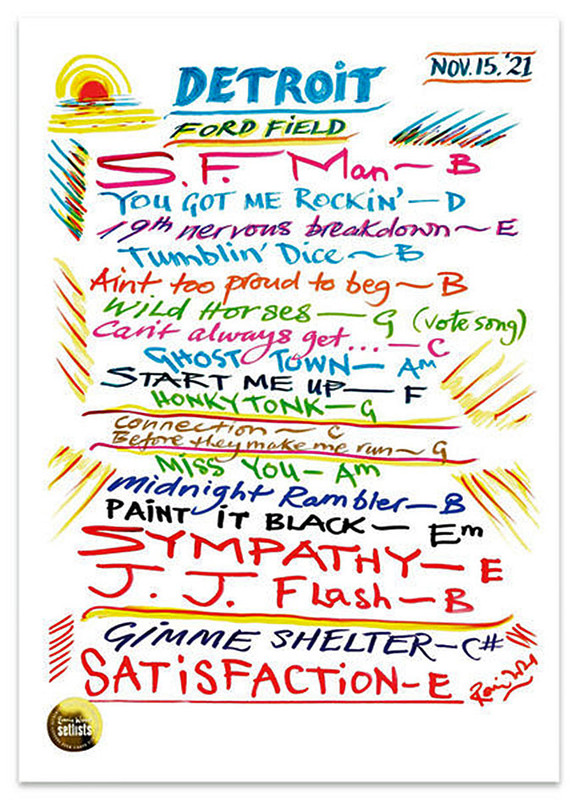 NOV. 15. '21
DETROIT
FORD FIELD
S.F. Man ~ B
YOU GOT ME ROCKIN' — D
19th nervous breakdown ~ E
Tumblin' Dice ~ B
Aint too proud to beg ~ B
WiLD HORSES — G (vote song)
Can't always get... — C
GHOST TOWN — Am
START ME UP — F
HONKY TONK — G
Connection ~ C
Before they make me run ~ G
MiSS YOU — Am
midnight Rambler — B
PAiNT iT BLACK — Em
SYMPATHY — E
J. J. FLash — B
GiMME SHELTER — C#
SATiSFACTiON — E
setlists